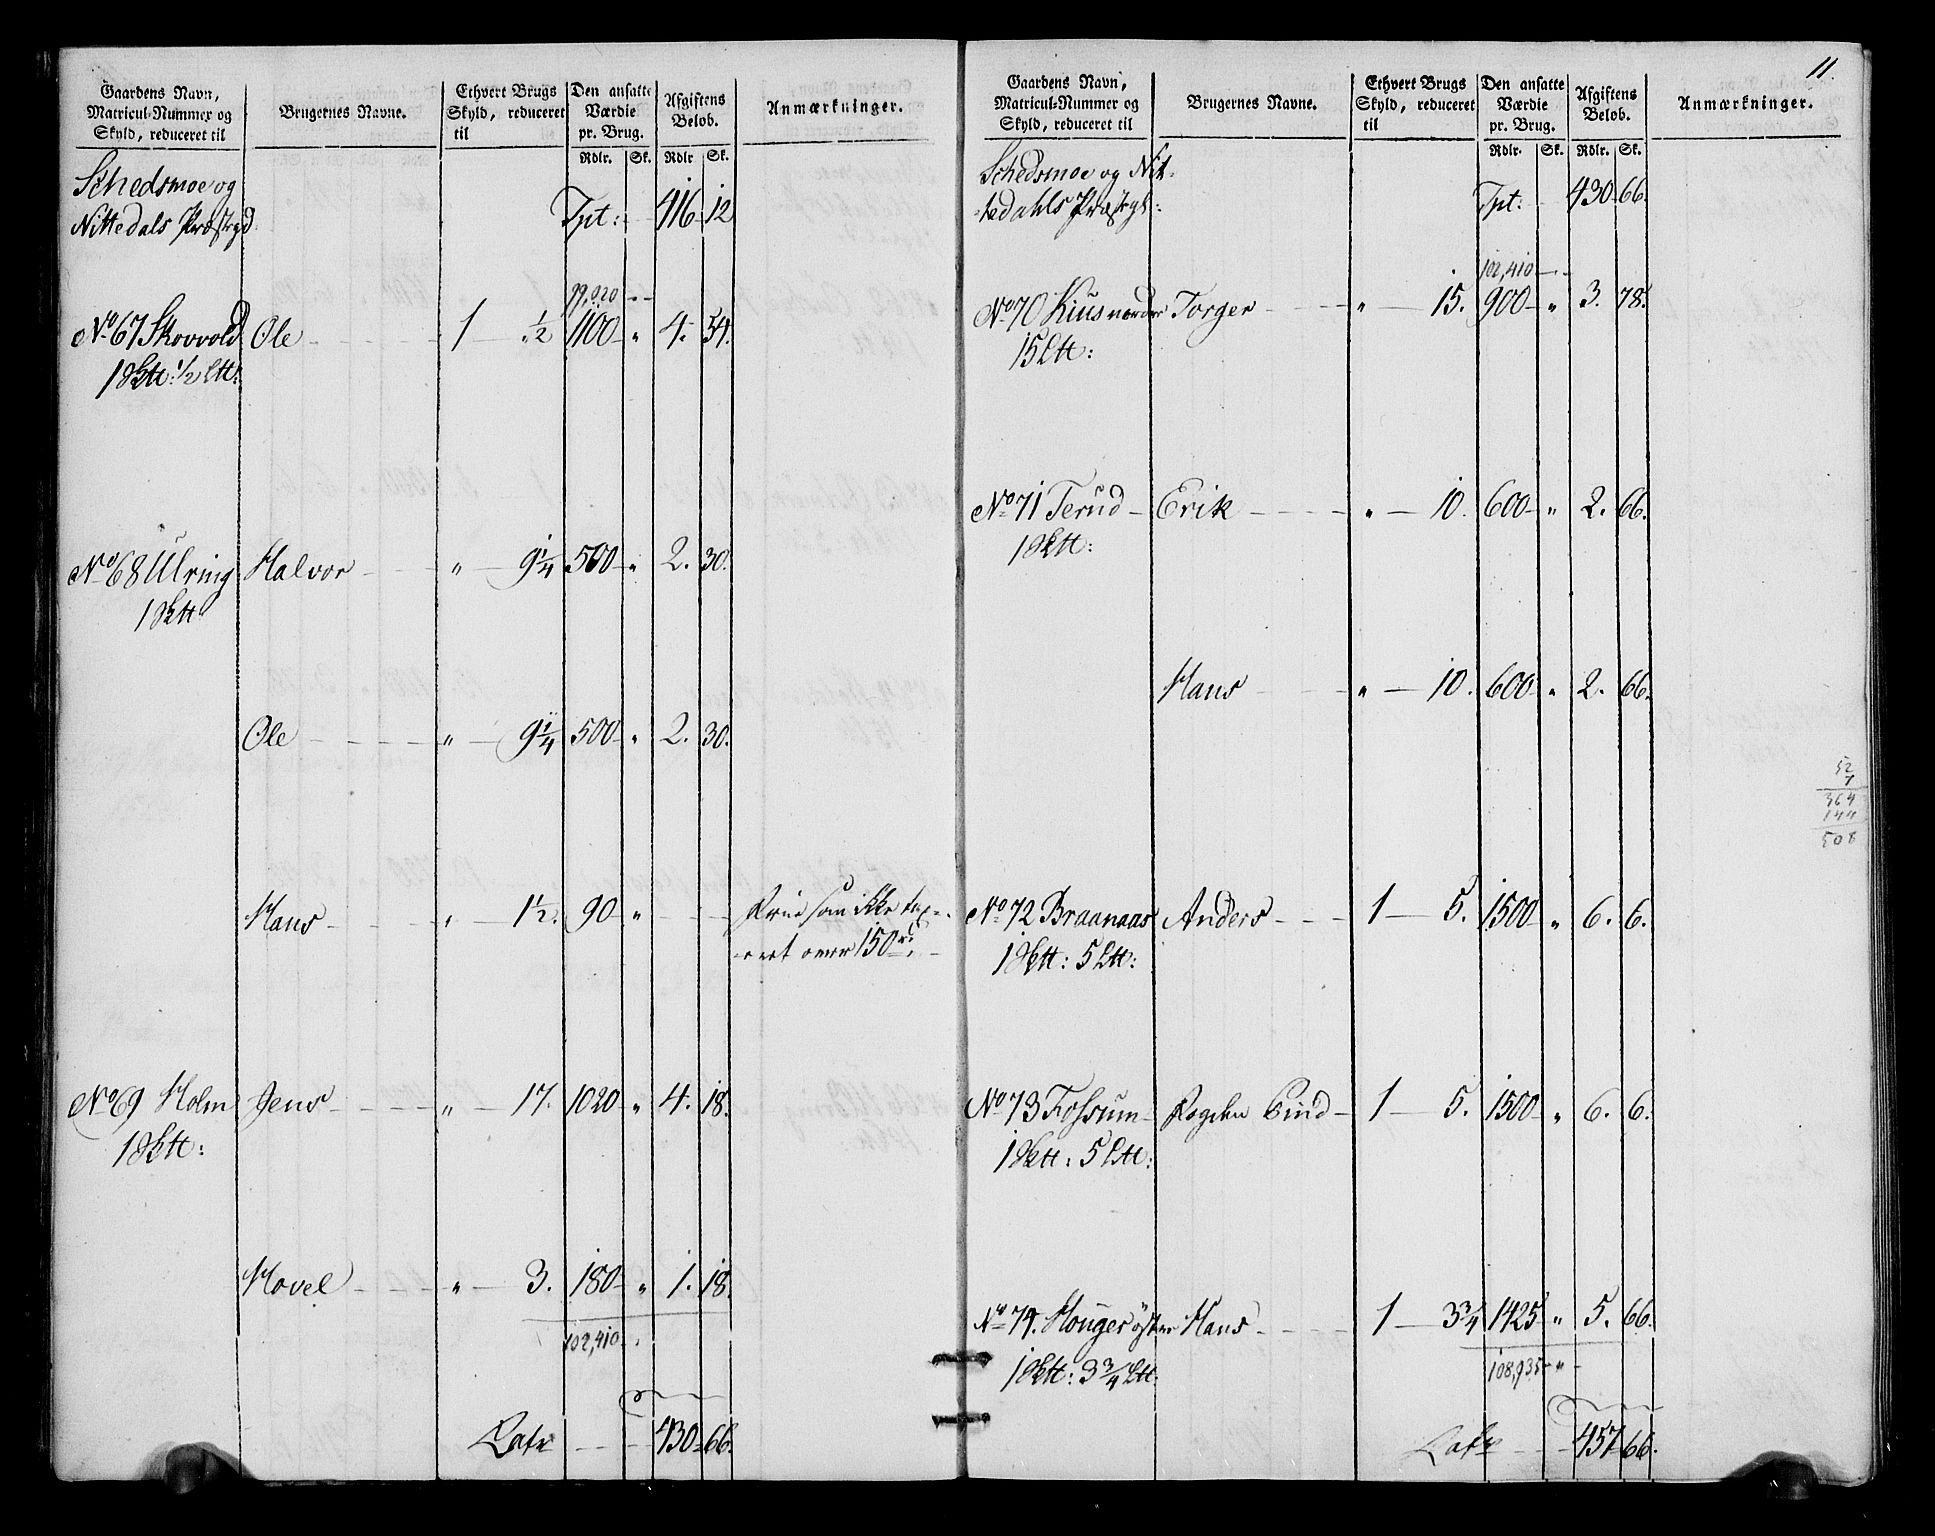 Gaardens Navn, Matricul-Nummer og Skyld, reduceret til | Brugernes Navne. | Ethvert Brugs Skyld, reduceret til | Den ansatte Værdie pr. Brug. Rdlr. Sk. | Afgiftens Beløb. Rdlr Sk. | Anmærkninger.
Schedsmoe og
Nittedals Præstegd Tpt: 416 12
99,020
No 67 Skovvold Ole 1 ½ 1100 " 4. 54.
1 Sktt: ½ Ltt:
No 68 Ulring Halvor " 9¼ 500 " 2. 30.
1 Sktt
Ole " 9¼ 500 " 2. 30.
Hans " 1½. 90 " som ikke tax-
eret over 150 rd
No 69 Holm Jens " 17. 1020 " 4. 18.
1 Sktt:
Hovel " 3. 180 " 1. 18.
102,410
Latr 430 66.
11.
Gaardens Navn, Matricul-Nummer og Skyld, reduceret til | Brugernes Navne. | Ethvert Brugs Skyld, reduceret til | Den ansatte Værdie pr. Brug. Rdlr. Sk. | Afgiftens Beløb. Rdlr. Sk. | Anmærkninger.
Schedsmoe og Nit-
tedahls Præstegl: Tpt: 430 66.
102,410
No 70 Kius nordre Torger " 15. 900 " 3. 78.
15 Ltt:
No 71 Terud Erik " 10. 600 " 2. 66.
1 Sktt:
Hans " 10. 600 " 2. 66.
52
7
364
144
508
No 72 Braanaas Anders 1 5. 1500 " 6. 6.
1 Sktt: 5 Ltt:
No 73 Fossum 1 5. 1500 " 6. 6.
1 Sktt: 5 Ltt:
No 74. Houger øster Hans 1 3¾ 1425 " 5. 66.
1 Sktt: 3¾ Ltt:
108,935 "
Latr 457 66.